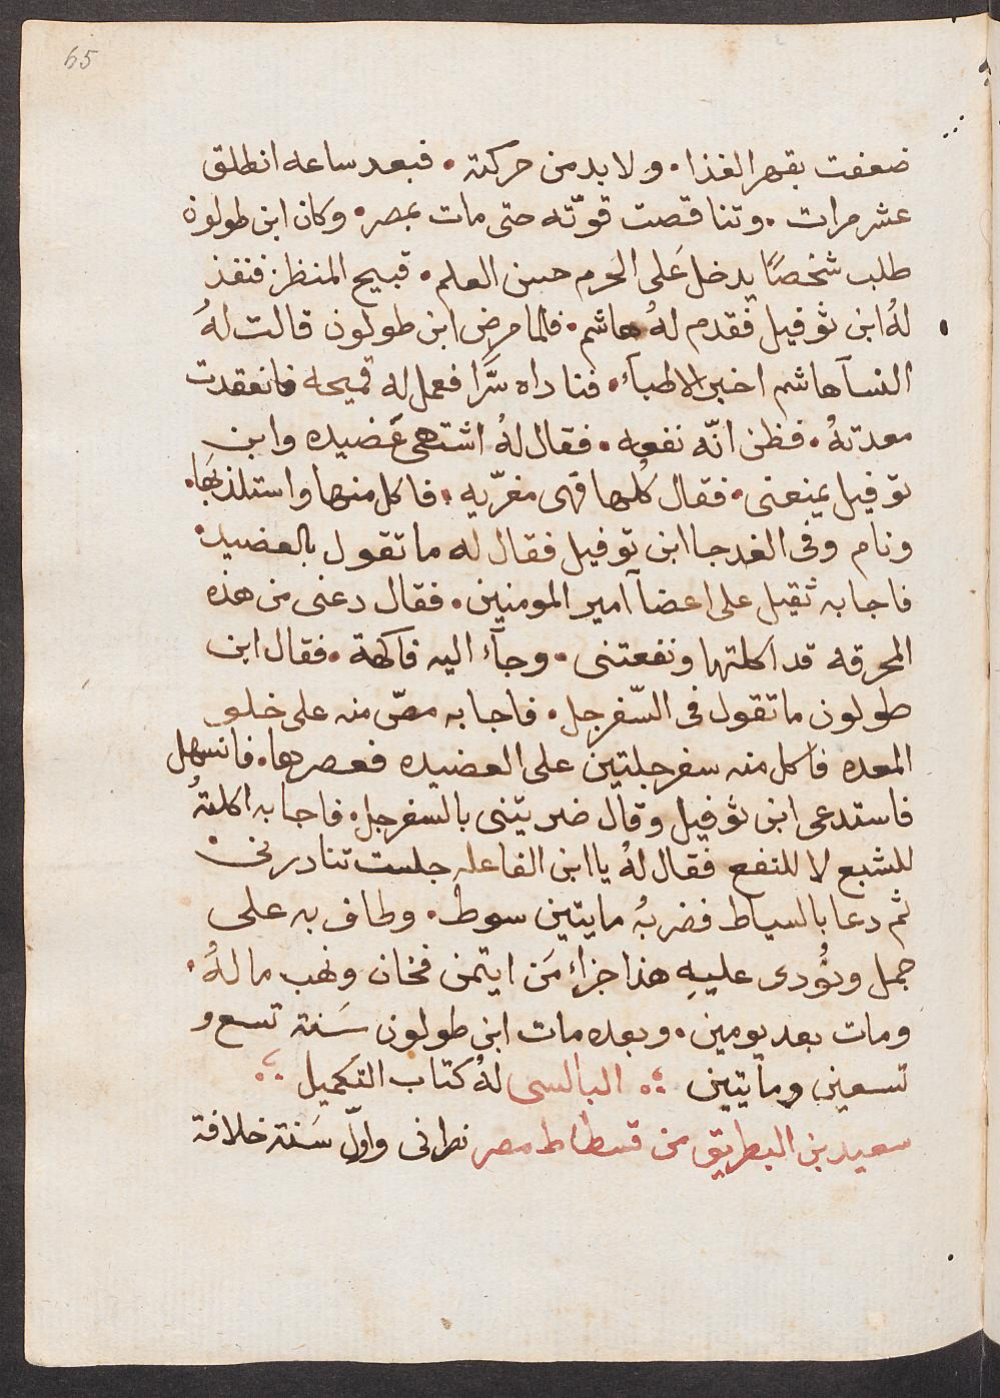 65
ضعفت بقهر الغذا. ولا بد من حركته. فبعد ساعه انطلق
عشر مرات. وتناقصت قوّته حتى مات بمصر. وكان ابن طولون
طلب شخصًا يدخل عَلى الحَرم حسن العلم. قبيح المنظر فنفذ
لهُ ابن توفيل فقدم لهُ هاشم. فلما مرض ابن طولون قالت لهُ
النسآ هاشم اخبر الاطبآء. فناداه سَّرا فعمل له قميحه فانعقدت
معدتهُ. فظن انّه نفعه. فقال لهُ اشتهى عَضيده وابن
توفيل يمنعنى. فقال كُلها فهى مغرّيه. فاكل منها واستلذ بَها.
ونام وفى الغد جا ابن توفيل فقال له ما تقول بالعضيده
فاجابه ثقيل على اعضآ امير المومنين. فقال دعنى من هذه
المحرقه قد اكلتها ونفعتنى. وجآء اليه فاكهة. فقال ابن
طولون ما تقول فى السّفرجل. فاجابه مصّ منه على خلو
المعده فاكل منه سفرجلتين على العضيده فعصرها. فانسهل
فاستدعى ابن توفيل وقال ضريتنى بالسفرجل. فاجابه اكلتهُ
للشبع لا للنفع فقال لهُ يا ابن الفاعله جلست تنادرنى
ثم دعا بالسياط فضربهُ مايتين سوط. وطاف به على
جمل ونُودى عليهِ هذا جزاء مَن ايتمن فخان ونهب ماله‍ُ.
ومات بعد يومين. وبعده مات ابن طولون سَنة تسع و
تسعين ومآيتين البالسى لهُ كتاب التكميل
سعيد بن البطريق من فسطاط مصر نطرانى واوّل سَنة خلافة